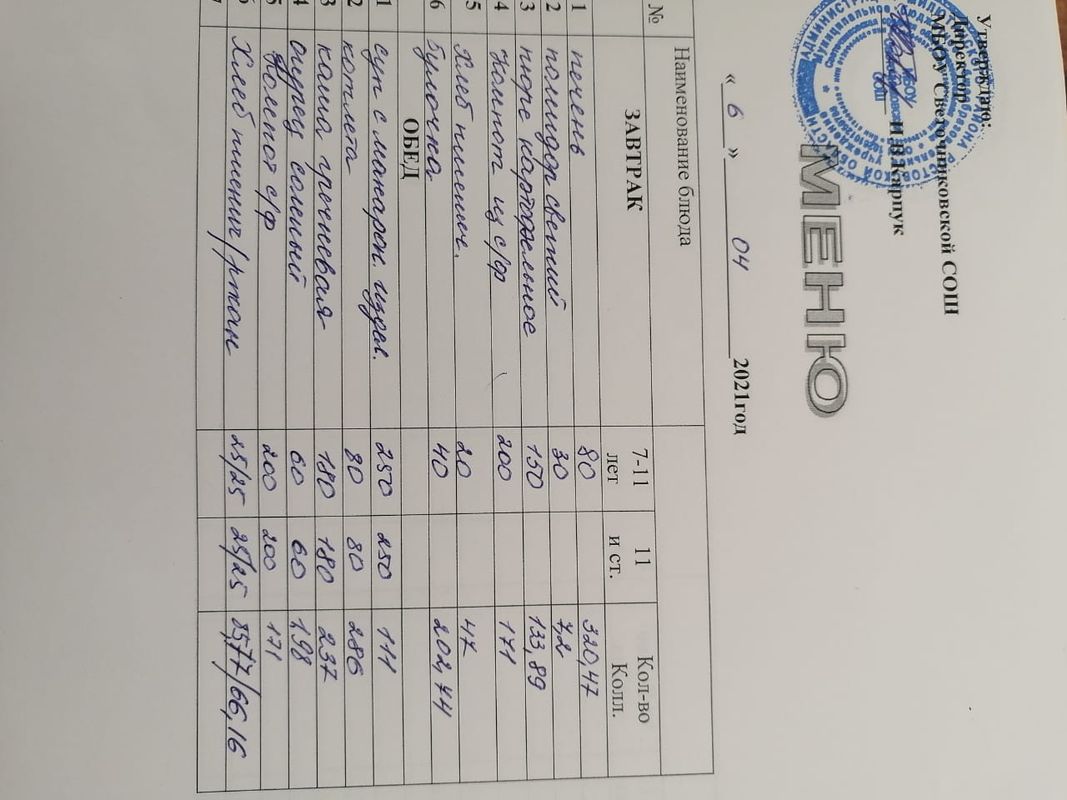 Утверждаю:
Директор
МБОУ Светочниковской СОШ
И.В.Карпук
МЕНЮ
« 6 » 04 2021год
№ Наименование блюда
ЗАВТРАК 7-11 лет 11 и ст. Кол-во Колл.
1 печень 80 320,47
2 помидор свежий 30 7,2
3 пюре картофельное 150 133,89
4 Компот из с/ф 200 171
5 Хлеб пшенич. 20 47
6 Булочка 40 202,44
ОБЕД
1 суп с макарон. издел. 250 250 111
2 котлета 80 80 286
3 каша гречневая 180 180 237
4 огурец соленый 60 60 1,98
5 Компот с/ф 200 200 171
6 Хлеб пшенич/ржан 25/25 25/25 85,77/66,16
7